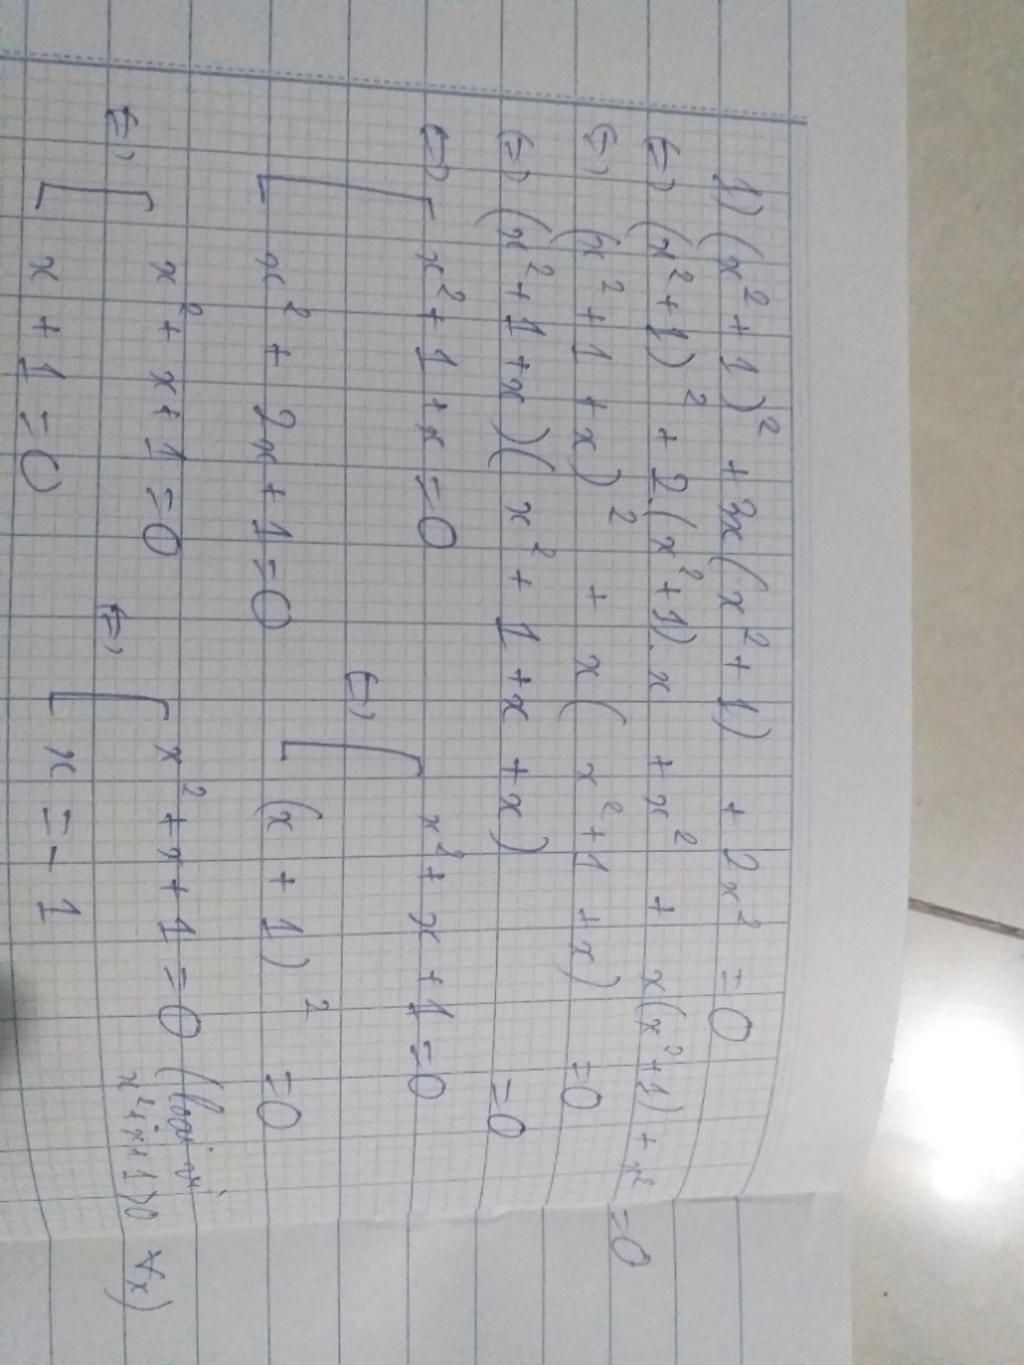 1) (x² + 1)² + 3x(x² + 1) + 2x² = 0
⇔ (x² + 1)² + 2.(x² + 1).x + x² + x(x² + 1) + x² = 0
⇔ (x² + 1 + x)² + x(x² + 1 + x) = 0
⇔ (x² + 1 + x)(x² + 1 + x + x) = 0
⇔ [ x² + 1 + x = 0
x² + 2x + 1 = 0
⇔ [ x² + x + 1 = 0
(x + 1)² = 0
⇔ [ x² + x + 1 = 0
x + 1 = 0
⇔ [ x² + x + 1 = 0 (loại vì
x² + x + 1 > 0 ∀x)
x = -1